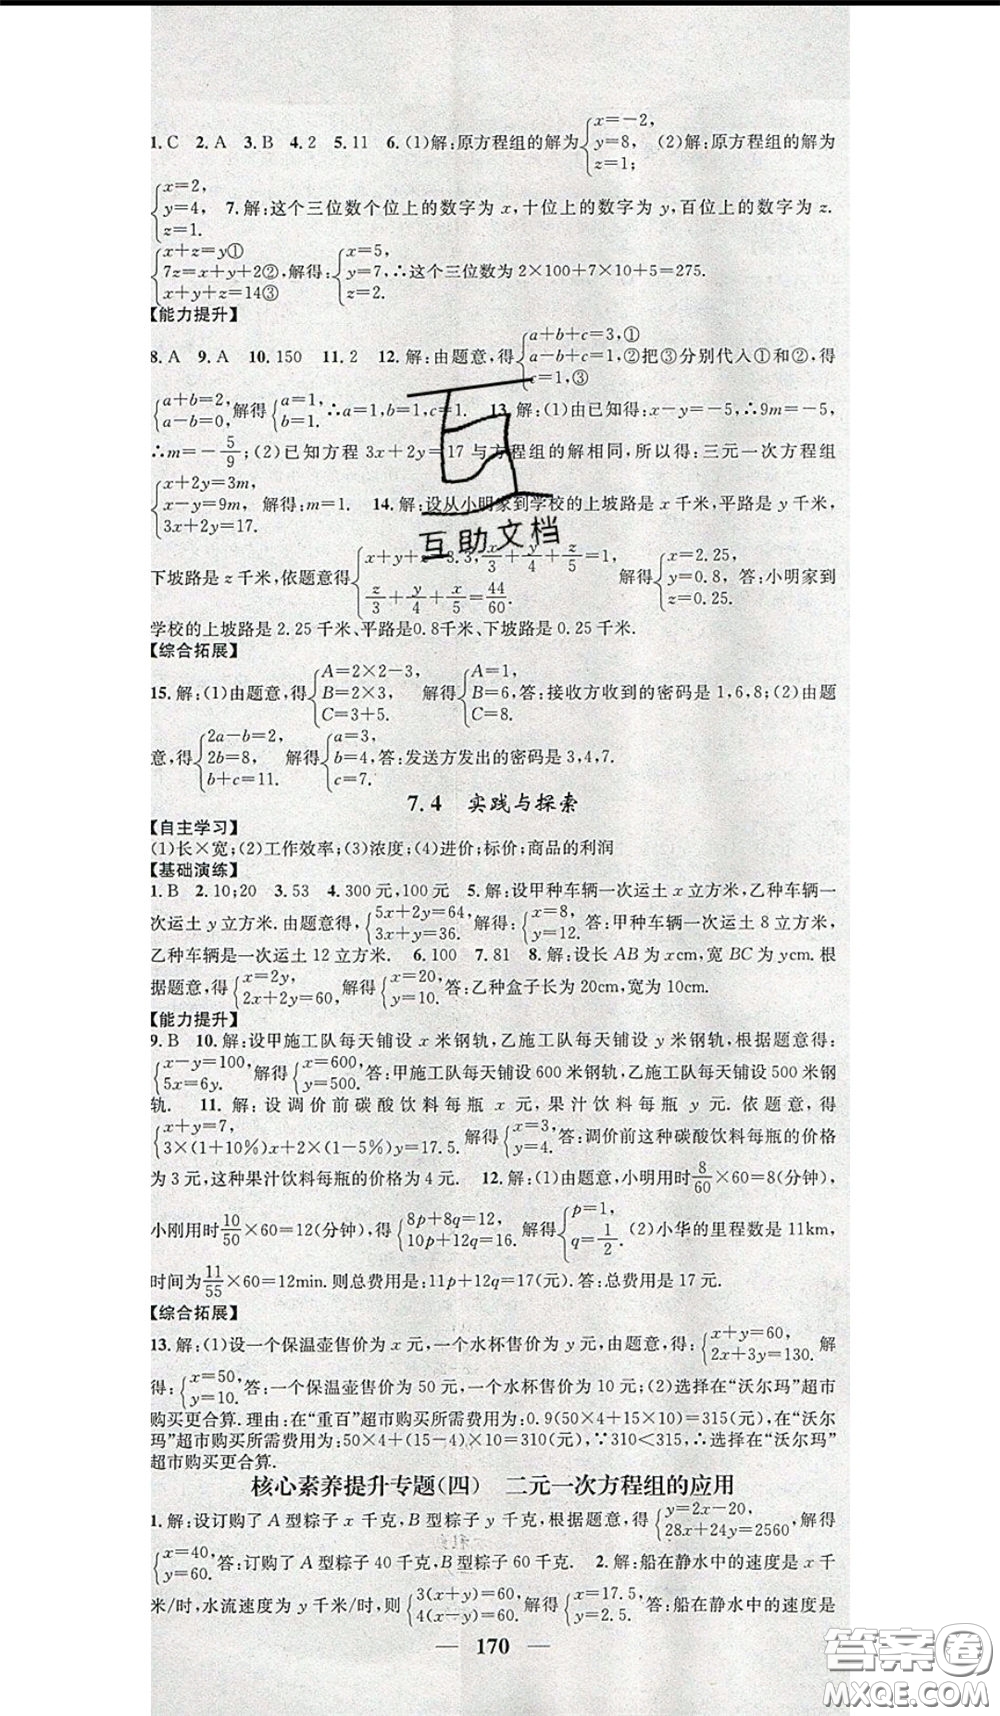 1. C 2. A 3. B 4. 2 5. 11 6. (1)解:原方程组的解为{x=-2, y=8, z=1; (2)解:原方程组的解为
{x=2, y=4, z=1. 7. 解:这个三位数个位上的数字为 x,十位上的数字为 y,百位上的数字为 z.
{x+z=y① 7z=x+y+2②, x+y+z=14③ 解得:{x=5, y=7, z=2. ∴这个三位数为 2×100+7×10+5=275.
【能力提升】
8. A 9. A 10. 150 11. 2 12. 解:由题意,得{a+b+c=3,① a-b+c=1,② c=1,③ 把③分别代入①和②,得
{a+b=2, a-b=0, 解得{a=1, b=1. ∴a=1,b=1,c=1. 13. 解:(1)由已知得:x-y=-5,∴9m=-5,
∴m=-5/9;(2)已知方程 3x+2y=17 与方程组的解相同,所以得:三元一次方程组
{x+2y=3m, x-y=9m, 3x+2y=17. 解得:m=1. 14. 解:设从小明家到学校的上坡路是 x 千米,平路是 y 千米,
互助文档
下坡路是 z 千米,依题意得{x+y+z=3.3, x/3+y/4+z/5=1, z/3+y/4+x/5=44/60. 解得{x=2.25, y=0.8, z=0.25. 答:小明家到
学校的上坡路是 2.25 千米、平路是0.8千米、下坡路是 0.25 千米.
【综合拓展】
15. 解:(1)由题意,得{A=2×2-3, B=2×3, C=3+5. 解得{A=1, B=6, C=8. 答:接收方收到的密码是 1,6,8;(2)由题
意,得{2a-b=2, 2b=8, b+c=11. 解得{a=3, b=4, c=7. 答:发送方发出的密码是 3,4,7.
7.4 实践与探索
【自主学习】
(1)长×宽;(2)工作效率;(3)浓度;(4)进价;标价;商品的利润
【基础演练】
1. B 2. 10;20 3. 53 4. 300 元,100 元 5. 解:设甲种车辆一次运土 x 立方米,乙种车辆一
次运土 y 立方米. 由题意得,{5x+2y=64, 3x+2y=36. 解得:{x=8, y=12. 答:甲种车辆一次运土 8 立方米,
乙种车辆是一次运土 12 立方米. 6. 100 7. 81 8. 解:设长 AB 为 xcm,宽 BC 为 ycm. 根
据题意,得{x=2y, 2x+2y=60, 解得{x=20, y=10. 答:乙种盒子长为 20cm,宽为 10cm.
【能力提升】
9. B 10. 解:设甲施工队每天铺设 x 米钢轨,乙施工队每天铺设 y 米钢轨,根据题意得:
{x-y=100, 5x=6y. 解得{x=600, y=500. 答:甲施工队每天铺设 600 米钢轨,乙施工队每天铺设 500 米钢
轨. 11. 解:设调价前碳酸饮料每瓶 x 元,果汁饮料每瓶 y 元. 依题意,得
{x+y=7, 3×(1+10%)x+2×(1-5%)y=17.5. 解得{x=3, y=4. 答:调价前这种碳酸饮料每瓶的价格
为 3 元,这种果汁饮料每瓶的价格为 4 元. 12. 解:(1)由题意,小明用时8/60×60=8(分钟),
小刚用时10/50×60=12(分钟),得{8p+8q=12, 10p+12q=16. 解得{p=1, q=1/2. (2)小华的里程数是 11km,
时间为11/55×60=12min. 则总费用是:11p+12q=17(元). 答:总费用是 17 元.
【综合拓展】
13. 解:(1)设一个保温壶售价为 x 元,一个水杯售价为 y 元,由题意,得:{x+y=60, 2x+3y=130. 解
得:{x=50, y=10. 答:一个保温壶售价为 50 元,一个水杯售价为 10 元;(2)选择在“沃尔玛”超市
购买更合算. 理由:在“重百”超市购买所需费用为:0.9(50×4+15×10)=315(元),在“沃尔
玛”超市购买所需费用为:50×4+(15-4)×10=310(元),∵310<315,∴选择在“沃尔玛”
超市购买更合算.
核心素养提升专题(四) 二元一次方程组的应用
1. 解:设订购了 A 型粽子 x 千克,B 型粽子 y 千克,根据题意,得{y=2x-20, 28x+24y=2560, 解得
{x=40, y=60. 答:订购了 A 型粽子 40 千克,B 型粽子 60 千克. 2. 解:船在静水中的速度是 x 千
米/时,水流速度为 y 千米/时,则{3(x+y)=60, 4(x-y)=60. 解得{x=17.5, y=2.5. 答:船在静水中的速度是
— 170 —
答案卷
MXQE.COM